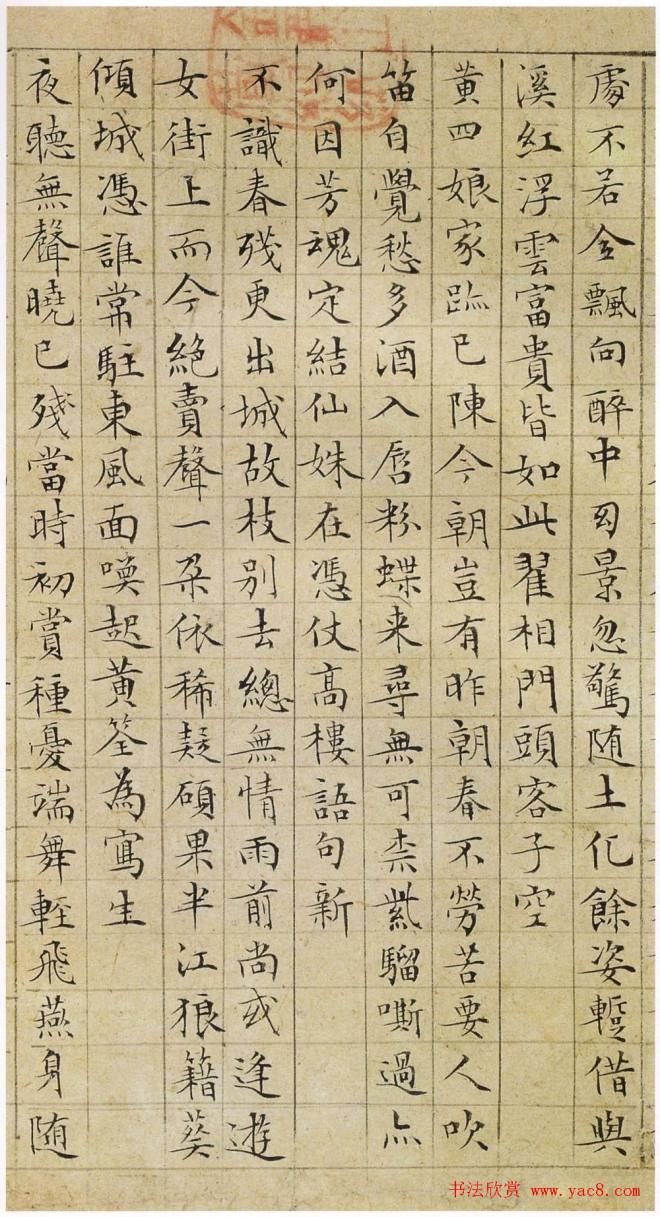 處不若令飄向醉中幻景忽驚随土化餘姿蹔借與
溪紅浮雲富貴皆如此翟相門頭客子空
黄四娘家跡已陳今朝豈有昨朝春不勞苦要人吹
笛自覺愁多酒入唇粉蝶来尋無可柰紫騮嘶過亦
何因芳魂定結仙姝在憑仗高樓語句新
不識春殘更出城故枝別去總無情雨前尚或逢遊
女街上而今絶賣聲一朶依稀疑碩果半江狼籍葬
傾城憑誰常駐東風面喚起黄筌為寫生
夜聽無聲曉已殘當時初賞種憂端舞輕飛燕身随
书法欣赏 www.yac8.com